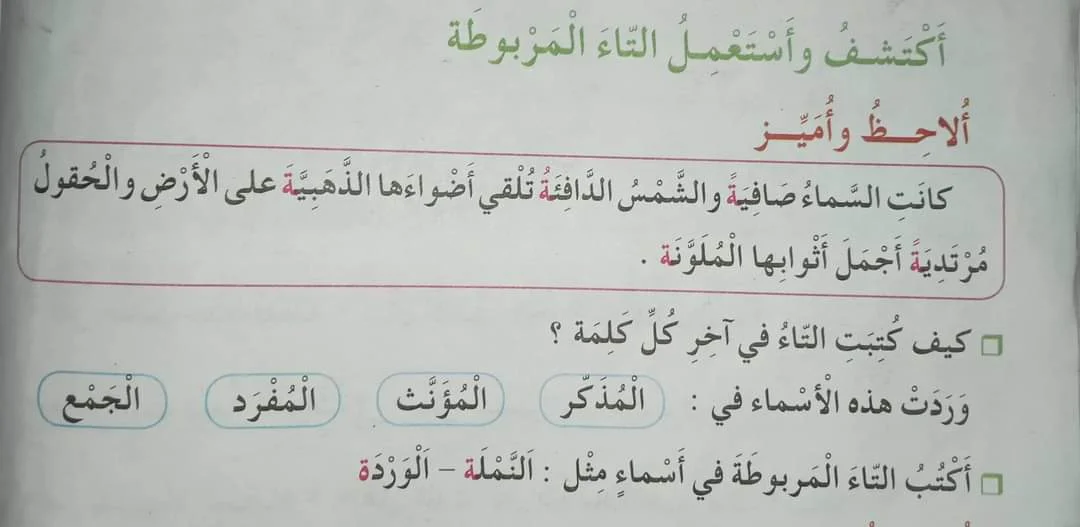 أَكْتَشِفُ وأَسْتَعْمِلُ التّاءَ الْمَرْبوطَة
أُلاحِظُ وأُمَيِّز
كانَتِ السَّماءُ صَافِيَةً والشَّمْسُ الدَّافِئَةُ تُلْقي أَضْواءَها الذَّهَبِيَّةَ على الْأَرْضِ والْحُقولُ
مُرْتَدِيَةً أَجْمَلَ أَثْوابِها الْمُلَوَّنَة .
كيف كُتِبَتِ التّاءُ في آخِرِ كُلِّ كَلِمَة ؟
وَرَدَتْ هذه الْأسْماء في : الْمُذَكّر الْمُؤَنَّث الْمُفْرَد الْجَمْع
أَكْتُبُ التّاءَ الْمَربوطَةَ في أَسْماءٍ مِثْل : اَلنَّمْلَة – اَلْوَرْدَة